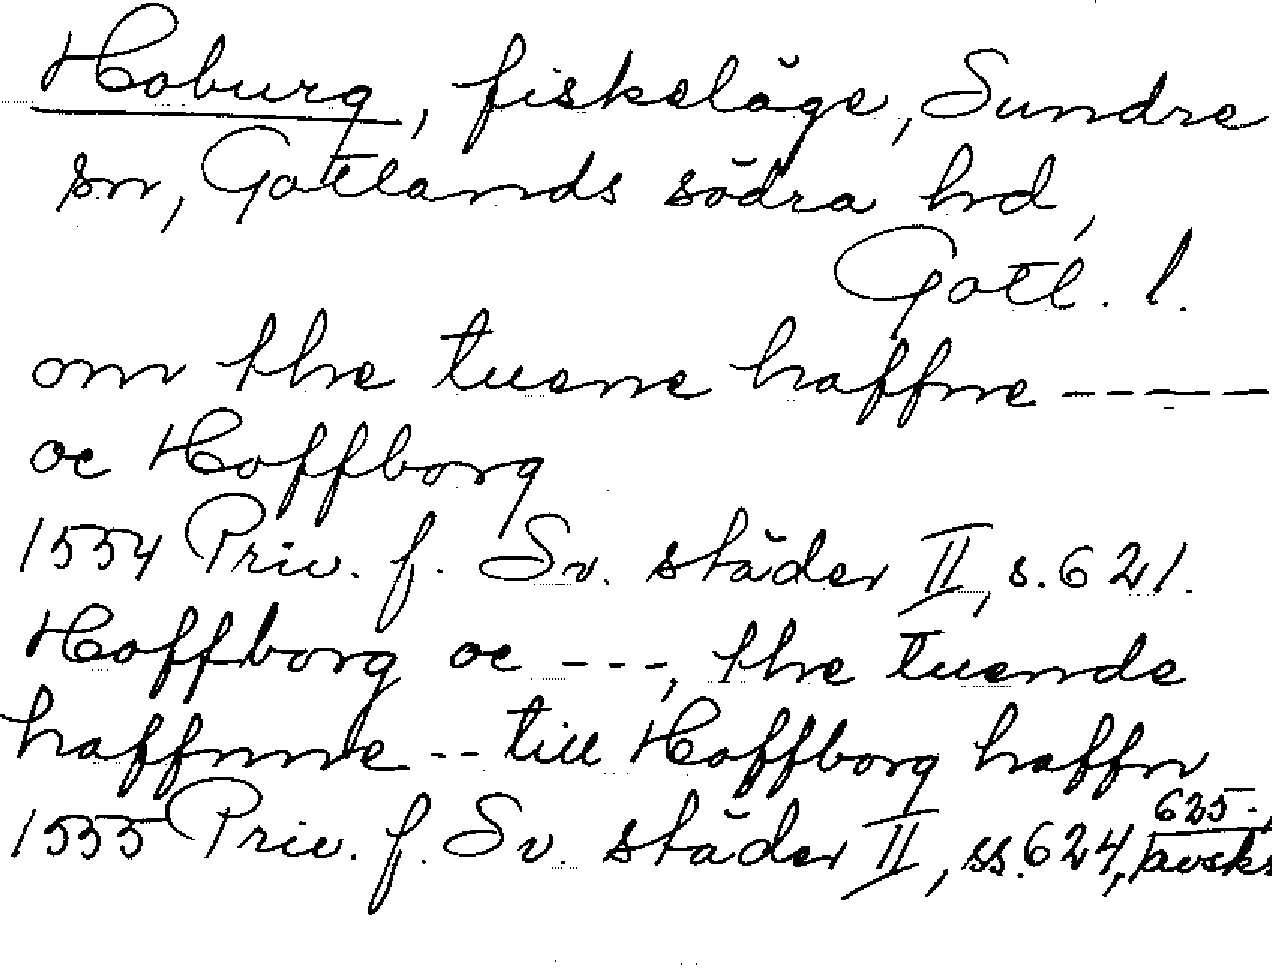 Hoburg, fiskeläge, Sundre
sn, Gotlands södra hd,
Gotl. l.
om the tuene haffne -----
oc Hoffborg
1554 Priv. f. Sv. städer II, s. 621.
Hoffborg oc ---, the tuende
haffnne -- till Hoffborg haffn
1555 Priv. f. Sv. städer II, ss. 624, 625.
avskr